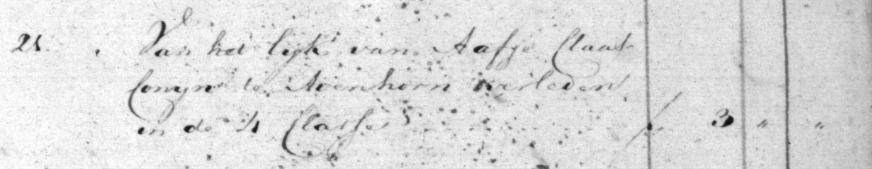 21. Van het lijk van Aafje Claas
Comyn te Avenhorn overleden
in de 4 Classe f 3 " "